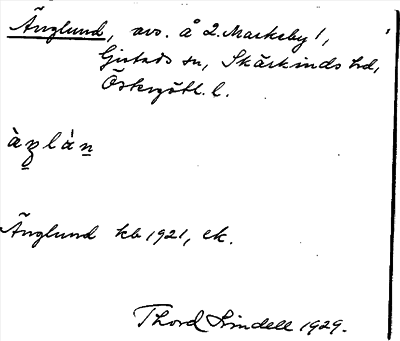 Änglund, avs. å 2. Markeby 1,
Gistads sn, Skärkinds hd,
Östergötl. l.
àŋlàn
Änglund kb 1921, ek.
Thord Lindell 1929.